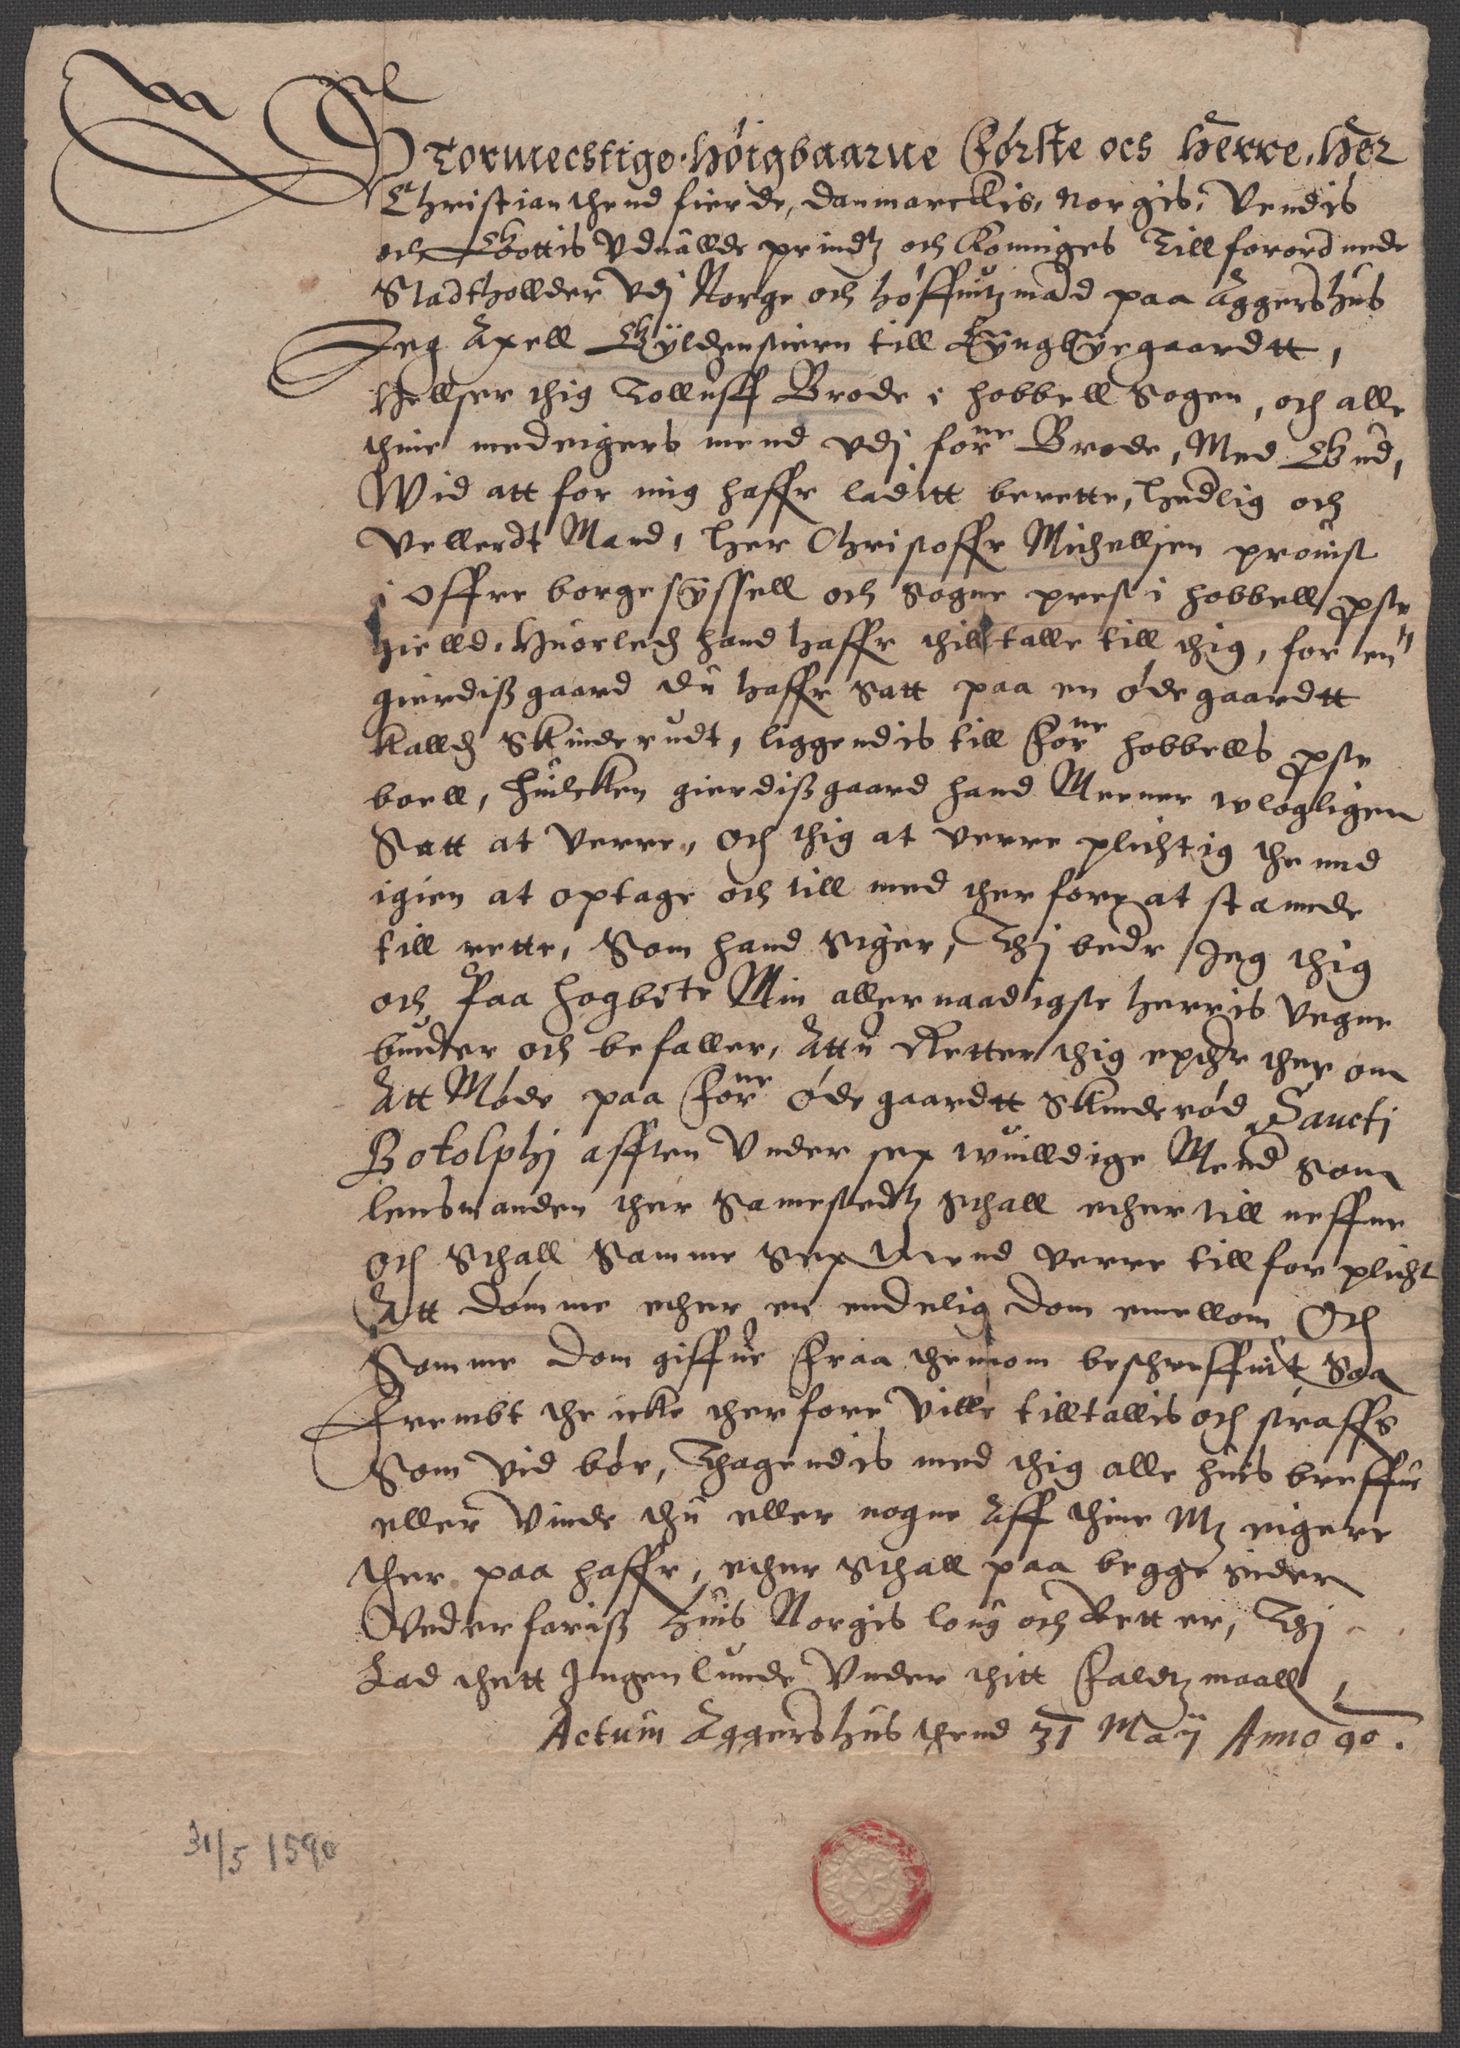 Stormechtige. Høigbaarne Første ocs Herre, Her
Christian thend fierde, Danmarckis, Norgis, Vendis
och Gottis Vduallde prindtz och Konniges Tillforordnede
Stadthollder vdj Norge och høffuitzmand paa Aggershus
Jeg Axell Gyldenstiern till Lyngbyegaardtt,
Hellser thig Tolluff Brode i hobbell Sogen, och alle
thine medeigers mend vdj forne Brode, Med Gud,
Wid att for mig haffr laditt berette, hedlig och
vellerdt Mand, Her Christoffr Michellsen prouist
i offre borgesyssell och Sogne prest i hobbell pste
hielld, huorledh hand haffr thilltalle till thig, for en
gierdiß gaard du haffr satt paa en øde gaardtt
kalldh Skinderudt, liggendis till forne hobbells pste
boell, huilcken gierdiß gaard hand Meener wlogligen
Satt at verre, och thig at verre plichtig thennd
igien at optage och till med therforr at stannde
till rette, Som hand siger, Thj beder Jeg thig
och paa hogbte Min allernaadigste herris vegne
biuder och befaller, Attu Retter thig epther ther om
Att Møde paa forne øde gaardtt Skinderød Sancti
Botolphj afften Vnder sex wuilldige Mend som
lensmanden ther Samestedtz schall ether till neffne
och schall Samme Sex Mend verre tillforplicht
Att dømme ether en endelig dom emellom Och
Samme dom giffue fraa thennom beschreffuit Saa
frembt the icke therfore ville tilltallis och straffs
Som vid bør, Thagendis med thig alle huis breffue
eller vinde thu eller nogne Aff thine Mz eigere
ther paa haffr, ether schall paa begge sider
Vederfariß huis Norgis loug och Rett er, Thj
Lad thett Jngenlunde Vnder thitt faldtzmaall,
Actum Aggershus thend 31 Maij Anno 90.
31/5 1590